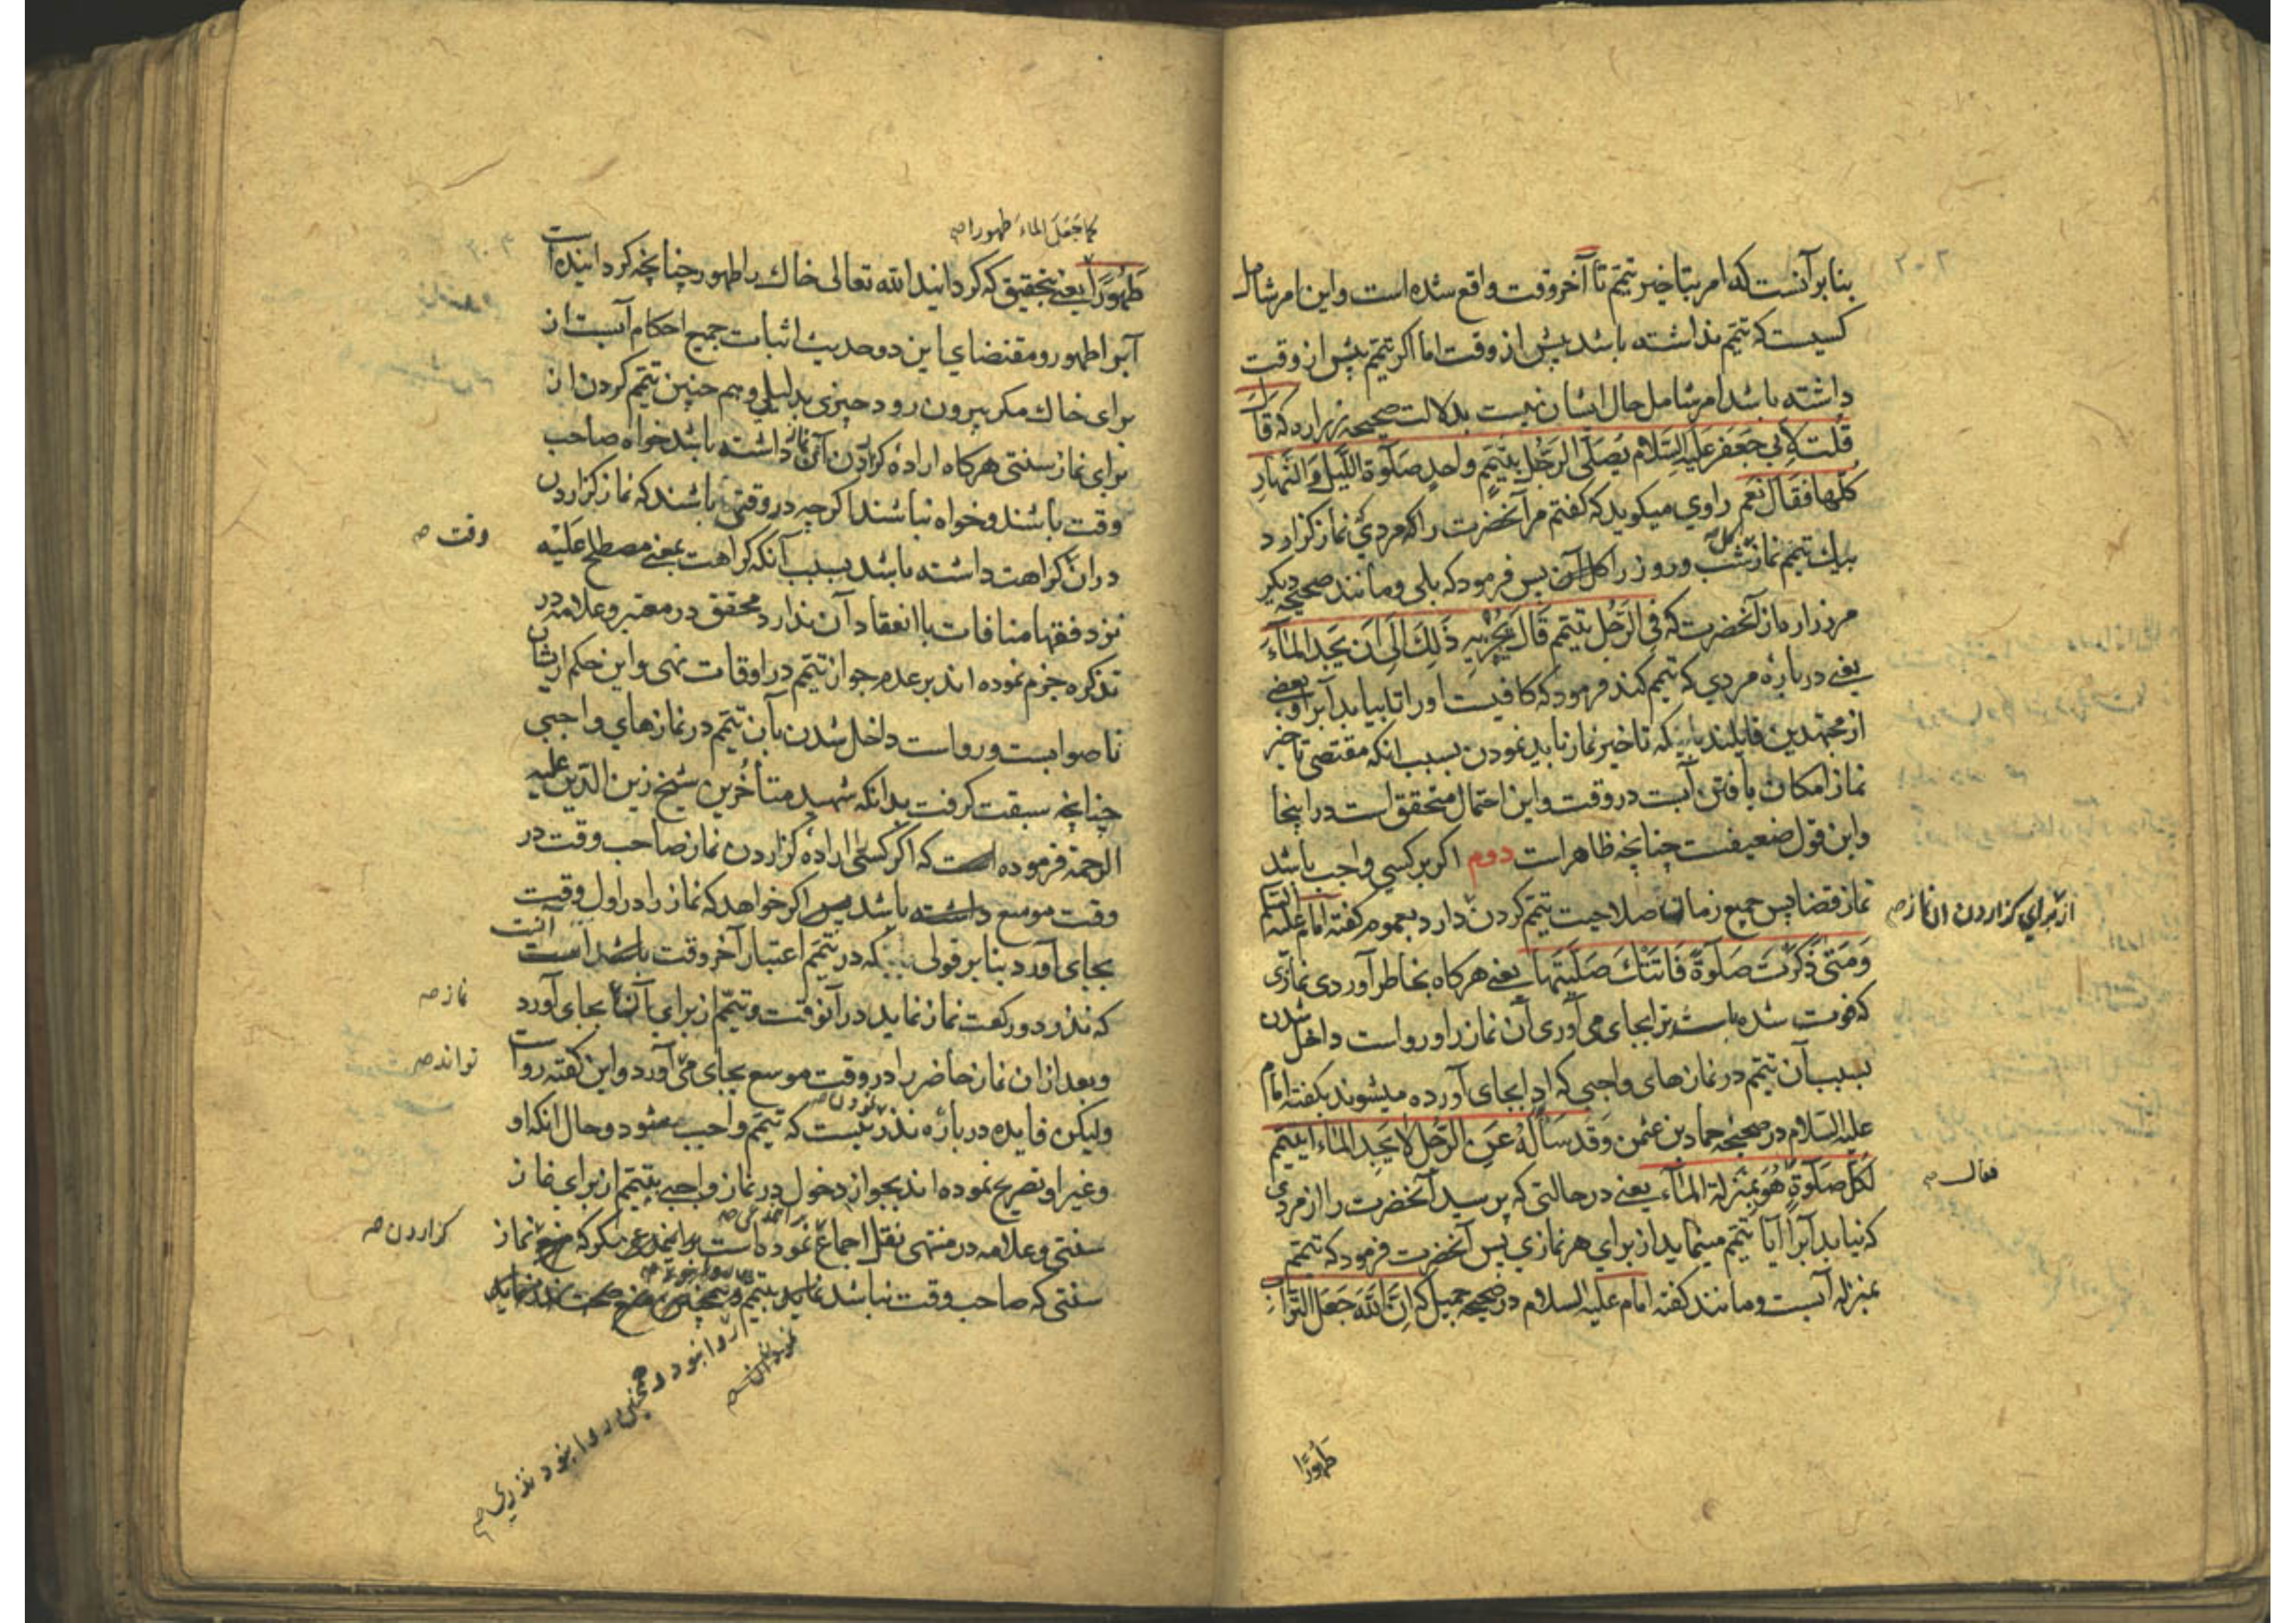 بنابر آنست که امر بتاخیر تیمّم تا آخر وقت واقع شده است و این امر شامل
کسیست که تیمّم نداشته باشد پیش از وقت اما اکر تیمّم پیش از وقت
داشته باشد امر شامل حال ایشان نیست بدلالت صحیحه زراره که قال
قُلت لابی جَعفر عَلیه السّلام یُصَلّی الرَجُل بتَیَمّمٍ واحدٍ صَلوة اللّیل وَالنّهارِ
کُلّها فقال نَعَم راوی میکوید که کفتم مر آنحضرت را که مردی نماز کزارد
بیك تیمّم نماز شب و روز را کل پس فرمود که بلی و مانند صحیحه دیکر
مر زراره از آنحضرت که فی الرَجُل یتیمّم قَال یُجْزِیهِ ذَلِكَ اِلَی اَن یَجِدَ المَآءَ
یعنی در بارهٔ مردی که تیمّم کند فرمود که کافیست او را تا بیابد آبرا و بعضی
از مجتهدین قایلند باینکه تاخیر نماز باید نمودن بسبب انکه مقتضی تاخیر
نماز امکان یافتن آبست در وقت و این احتمال متحقق است در اینجا
و این قول ضعیفست چنانچه ظاهر است دوم اکر بر کسی واجب باشد
نماز قضا پس جمیع زمان صلاحیت تیمّم کردن دارد بعموم کفته امام علیه السّلام
از برای کزاردن ان نماز صح
وَمَتَی ذَکَرْتَ صَلوةً فَاتَتْكَ صَلّیتَها یعنی هرکاه بخاطر آوردی نمازی
که فوت شده باشد ترا بجای می آوری آن نماز را و رواست داخل شدن
بسبب آن تیمّم در نمازهای واجبی که ادا بجای آورده میشوند بکفته امام
علیه السّلام در صحیحه حماد بن عثمن وَقَد سَاَلَهُ عَنِ الرّجُل لا یَجِد المَاءَ اَیتیَمّم
لکُلّ صَلوةٍ هُوَ بمنزلة المَآء یعنی در حالتی که پرسید آنحضرت را از مردی
فقال صح
که نیابد آبرا آیا تیمّم مینماید از برای هر نمازی پس آنحضرت فرمود که تیمّم
بمنزله آبست و مانند کفته امام علیه السلام در صحیحه جمیل که اِنَّ اللّهَ جَعَلَ التُرابَ
طَهُوْرًا
کما جَعَلَ الماءَ طهورا صح
طَهُوْرًا یعنی بتحقیق که کردانید الله تعالی خاك را طهور چنانچه کردانیده است
آبرا طهور و مقتضای این دو حدیث اثبات جمیع احکام آبست از
برای خاك مکر بیرون رود چیزی بدلیلی و هم چنین تیمّم کردن از
برای نماز سنتی هرکاه ارادهٔ کزاردن آن نماز داشته باشد خواه صاحب
وقت باشند و خواه نباشند اکرچه در وقتی باشند که نماز کزاردن
وقت صح
دران کراهت داشته باشد بسبب آنکه کراهت بمعنی مصطلح عَلَیْه
نزد فقها منافات با انعقاد آن ندارد محقق در معتبر و علامه در
تذکره جزم نموده اند بر عدم جواز تیمّم در اوقات نهی و این حکم ازیشان
ناصوابست و رواست داخل شدن بآن تیمّم در نمازهای واجبی
چنانچه سبقت کرفت بدانکه شهید متأخرین شیخ زین الدّین علیه
الرحمة فرموده است که اکر کسی ارادهٔ کزاردن نماز صاحب وقت در
وقت موسع داشته باشد اکر خواهد که نماز را در اول وقت
بجای آورد بنابر قولی که در تیمّم اعتبار آخر وقت انست
که نذر دو رکعت نماز نماید در آنوقت و تیمّم از برای آن بجای آورد
نماز صح
و بعد ازان نماز حاضر را در وقت موسع بجای می آورد و این کفته رواست
تواند صح
ولیکن فایده در باره نذر نیست که تیمّم واجب شود و حال انکه او
و غیر او تصریح نموده اند بجواز دخول در نماز واجبی بتیمّم از برای نماز
سنتی و علامه در منتهی نقل اجماع نموده است نماز
کزاردن صح
سنتی که صاحب وقت نباشد تیمّم
روا بود و همچنین روا بود نذری صح